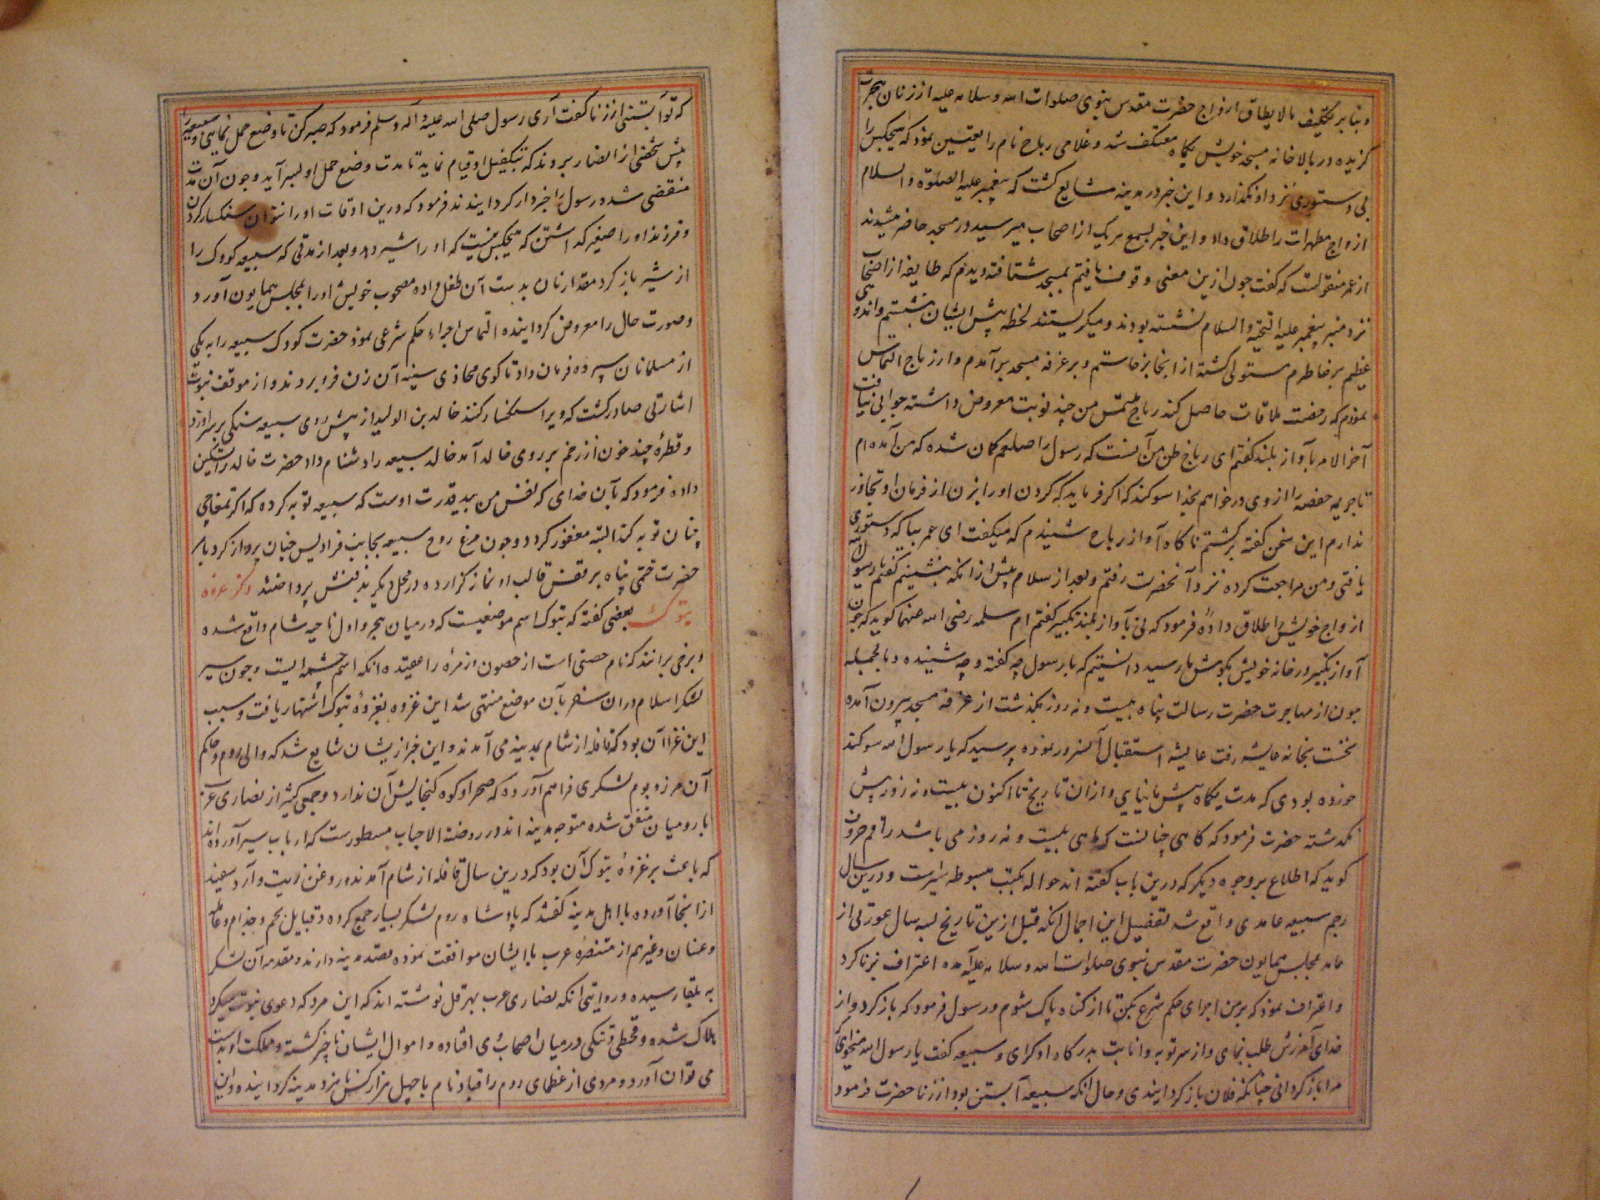 و بنابر تکلیف مالایطاق ازواج حضرت مقدس نبوی صلوات الله و سلامه علیه از زنان هجرت
گزیده در بالاخانه مسجد خویش یکماه معتکف شد و غلامی رباح نام را تعیین نمود که هیچکس را
بی دستوری نزد او نگذارد و این خبر در مدینه شایع گشت که پیغمبر علیه الصلوة والسلام
ازواج مطهرات را طلاق داد و این خبر بسمع هر یک از اصحاب میرسید در مسجد حاضر میشدند
از عمر منقولست که گفت چون ازین معنی وقوف یافتم بمسجد شتافته دیدم که طایفه از اصحاب
نزد منبر پیغمبر علیه التحیة والسلام نشسته بودند و میگریستند لحظه پیش ایشان بنشستم و اندوهی
عظیم بر خاطرم مستولی گشته از انجا برخاستم و بر غرفه مسجد برآمدم و از رباح التماس
نمودم که رخصت ملاقات حاصل کند رباح ملتمس من چند نوبت معروض داشته جوابی نیافت
آخر الامر بآواز بلند گفتم ای رباح ظن من آنست که رسول را صلعم گمان شده که من آمده ام
تا جریمه حفصه را از وی درخواهم بخدا سوکند که اگر فرماید که گردن او را بزن از فرمان او تجاوز
ندارم این سخن گفته برگشتم ناگاه آواز رباح شنیدم که میگفت ای عمر بیا که دستوری
یافتی و من مراجعت کرده نزد آنحضرت رفتم و بعد از سلام پیش از انکه بنشینم گفتم یا رسول الله
ازواج خویش را طلاق داده فرمود که نی بآواز بلند تکبیر گفتم ام سلمه رضی الله عنها گوید که چون
آواز تکبیر در خانه خویش بگوش ما رسید دانستیم که با رسول چه گفته و چه شنیده و بالجمله
چون از مهاجرت حضرت رسالت پناه بیست و نه روز بگذشت از غرفه مسجد بیرون آمده
نخست بخانه عایشه رفت عایشه استقبال آنسرور نموده پرسید که یا رسول الله سوکند
خورده بودی که مدت یکماه پیش ما نیایی و از ان تاریخ تا اکنون بیست و نه روز پیش
نگذشته حضرت فرمود که گاهی چنانست که ماهی بیست و نه روز می باشد راقم حروف
گوید که اطلاع بر وجوه دیگر که درین باب گفته اند حواله بکتب مبسوطه است و درین سال
رجم سبیعه غامدی واقع شد تفصیل این اجمال آنکه قبل ازین تاریخ بسه سال عورتی از
غامد بمجلس همایون حضرت مقدس نبوی صلوات الله و سلامه علیه آمده اعتراف بزنا کرد
و اعتراف نمود که بر من اجرای حکم شرع بکن تا از گناه پاک شوم رسول فرمود که بازگرد و از
خدای آمرزش طلب نمای و از سر توبه و انابت بدرگاه او گرای و سبیعه گفت یا رسول الله میخواهی
مرا بازگردانی چنانکه فلان بازگردانیدی و حال آنکه سبیعه آبستن بود از زنا حضرت فرمود
که تو آبستنی از زنا گفت آری رسول صلی الله علیه و آله وسلم فرمود که صبر کن تا وضع حمل نمایی و سبیعه را
پیش شخصی از انصار بردند که بتکفیل او قیام نماید تا مدت وضع حمل او بسر آید و چون آن مدت
منقضی شده رسول را خبردار کردایندند فرمود که درین اوقات او را نتوان سنکسار کردن
و فرزند او را صغیر گذاشتن که هیچکس نیست که او را شیر دهد و بعد از مدتی که سبیعه کودک را
از شیر باز کرد مقدار نان بدست آن طفل داده مصحوب خویش او را بمجلس همایون آورد
و صورت حال را معروض کردانیده التماس اجراء حکم شرعی نمود حضرت کودک سبیعه را به یکی
از مسلمانان سپرده فرمان داد تا گوی محاذی سینه آن زن فرو بردند و از موقف نبوت
اشارتی صادر گشت که ویرا سنکسار کنند خالد بن الولید از پیش روی سبیعه سنگی بر سر او زد
و قطره چند خون از زخم بر روی خالد آمد خالد سبیعه را دشنام داد حضرت خالد را تسکین
داده فرمود که بآن خدای که نفس من بید قدرت اوست که سبیعه توبه کرده که اگر تمغاچی
چنان توبه کند البته مغفور گردد و چون مرغ روح سبیعه بجانب فرادیس جنان پرواز کرد با
حضرت ختمی پناه بر نفس قالب او نماز گزارده در محل دیگر بدفنش پرداختند ذکر غزوه
تبوک بعضی گفته که تبوک اسم موضعیست که در میان حجر و اول ناحیه شام واقع شده
و برخی برانند که نام حصنی است از حصون و زمره را عقیده انکه اسم چشمه ایست و چون سیر
لشکر اسلام در ان سفر بآن موضع منتهی شد این غزوه بغزوه تبوک اشتهار یافت و سبب
این غزا آن بود که قافله از شام بمدینه می آمدند و این خبر از یشان شایع شد که والی روم و حاکم
آن مرز و بوم لشکری فراهم آورده که صحرا و کوه گنجایش آن ندارد و جمعی کثیر از نصاری عرب
با رومیان متفق شده متوجه مدینه اند و در روضة الاحباب مسطورست که ارباب سیر آورده اند
که باعث بر غزوه تبوک آن بود که درین سال قافله از شام آمدند و روغن زیت و آرد سفید
از انجا آورده با اهل مدینه گفتند که پادشاه روم لشکر بسیار جمع کرده و قبایل لخم و جذام و عامله
و غسان و غیرهم از متنصره عرب با ایشان موافقت نموده قصد مدینه دارند و مقدمه آن لشکر
به بلقا رسیده و روایتی انکه نصاری عرب بهرقل نوشته اند که این مرد که دعوی نبوت میکرد
هلاک شده و قحطی و تنگی در میان اصحاب وی افتاده و اموال ایشان ناچیز گشته و مملکت او بدست
می توان آورد و مردی از عظمای روم را قباد نام با چهل هزار کس نامزد مدینه کردانیده و این